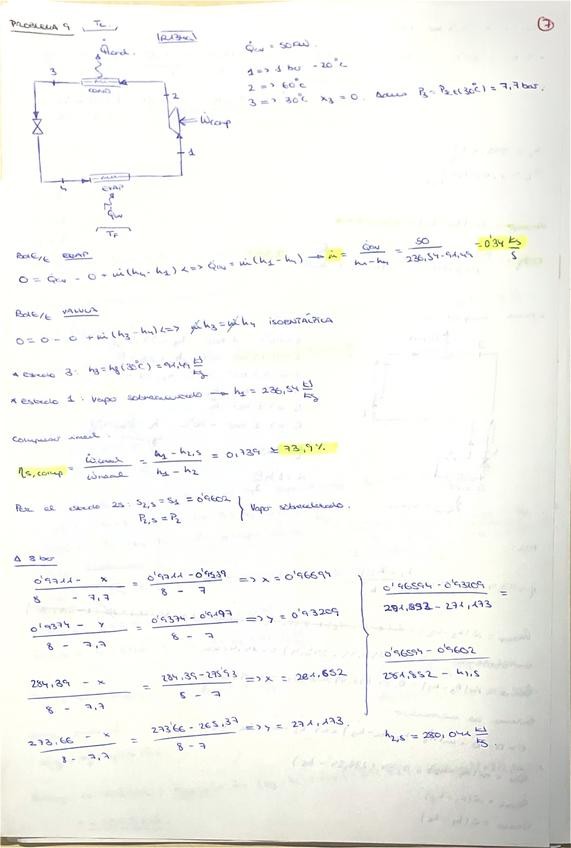 PROBLEMA 9
TC
R134a
7
Q̇cond.
Q̇cv = 50 kW.
1 => 1 bar -20°C
2 => 60°C
3 => 30°C x3 = 0. P3 = Psat(30°C) = 7,7 bar.
3
COND
2
Ẇcomp
1
4
EVAP
Q̇cv
TF
BdE/E EVAP
0 = Q̇cv - 0 + ṁ(h4 - h1) <=> Q̇cv = ṁ(h1 - h4) → ṁ = Q̇cv / (h1 - h4) = 50 / (236,54 - 91,49) = 0'34 kg/s
BdE/E VALVULA
0 = 0 - 0 + ṁ(h3 - h4) <=> ṁh3 = ṁh4 ISOENTÁLPICA
* Estado 3: h3 = hf(30°C) = 91,49 kJ/kg
* Estado 1: Vapor sobrecalentado → h1 = 236,54 kJ/kg
Compresor
ηs,comp = Ẇideal / Ẇreal = (h1 - h2,s) / (h1 - h2) = 0,739 ≅ 73,9%
Para el estado 2s: S2,s = S1 = 0'9602
P2,s = P2 } Vapor sobrecalentado.
A 8 bar
(0'9711 - x) / (8 - 7,7) = (0'9711 - 0'9539) / (8 - 7) => x = 0'96594
(0'9374 - y) / (8 - 7,7) = (0'9374 - 0'9197) / (8 - 7) => y = 0'93209
(284,39 - x) / (8 - 7,7) = (284,39 - 275'93) / (8 - 7) => x = 281,852
(273,66 - x) / (8 - 7,7) = (273'66 - 265,37) / (8 - 7) => y = 271,173.
(0'96594 - 0'93209) / (281,852 - 271,173) =
(0'96594 - 0'9602) / (281,852 - h2,s)
h2,s = 280,041 kJ/kg.